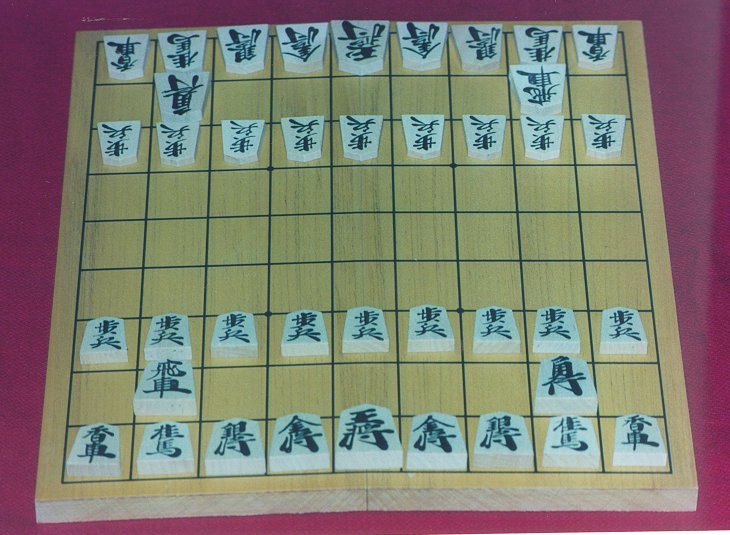 香車 桂馬 銀将 金将 王将 金将 銀将 桂馬 香車
角行 飛車
歩兵 歩兵 歩兵 歩兵 歩兵 歩兵 歩兵 歩兵 歩兵
歩兵 歩兵 歩兵 歩兵 歩兵 歩兵 歩兵 歩兵 歩兵
飛車 角行
香車 桂馬 銀将 金将 王将 金将 銀将 桂馬 香車